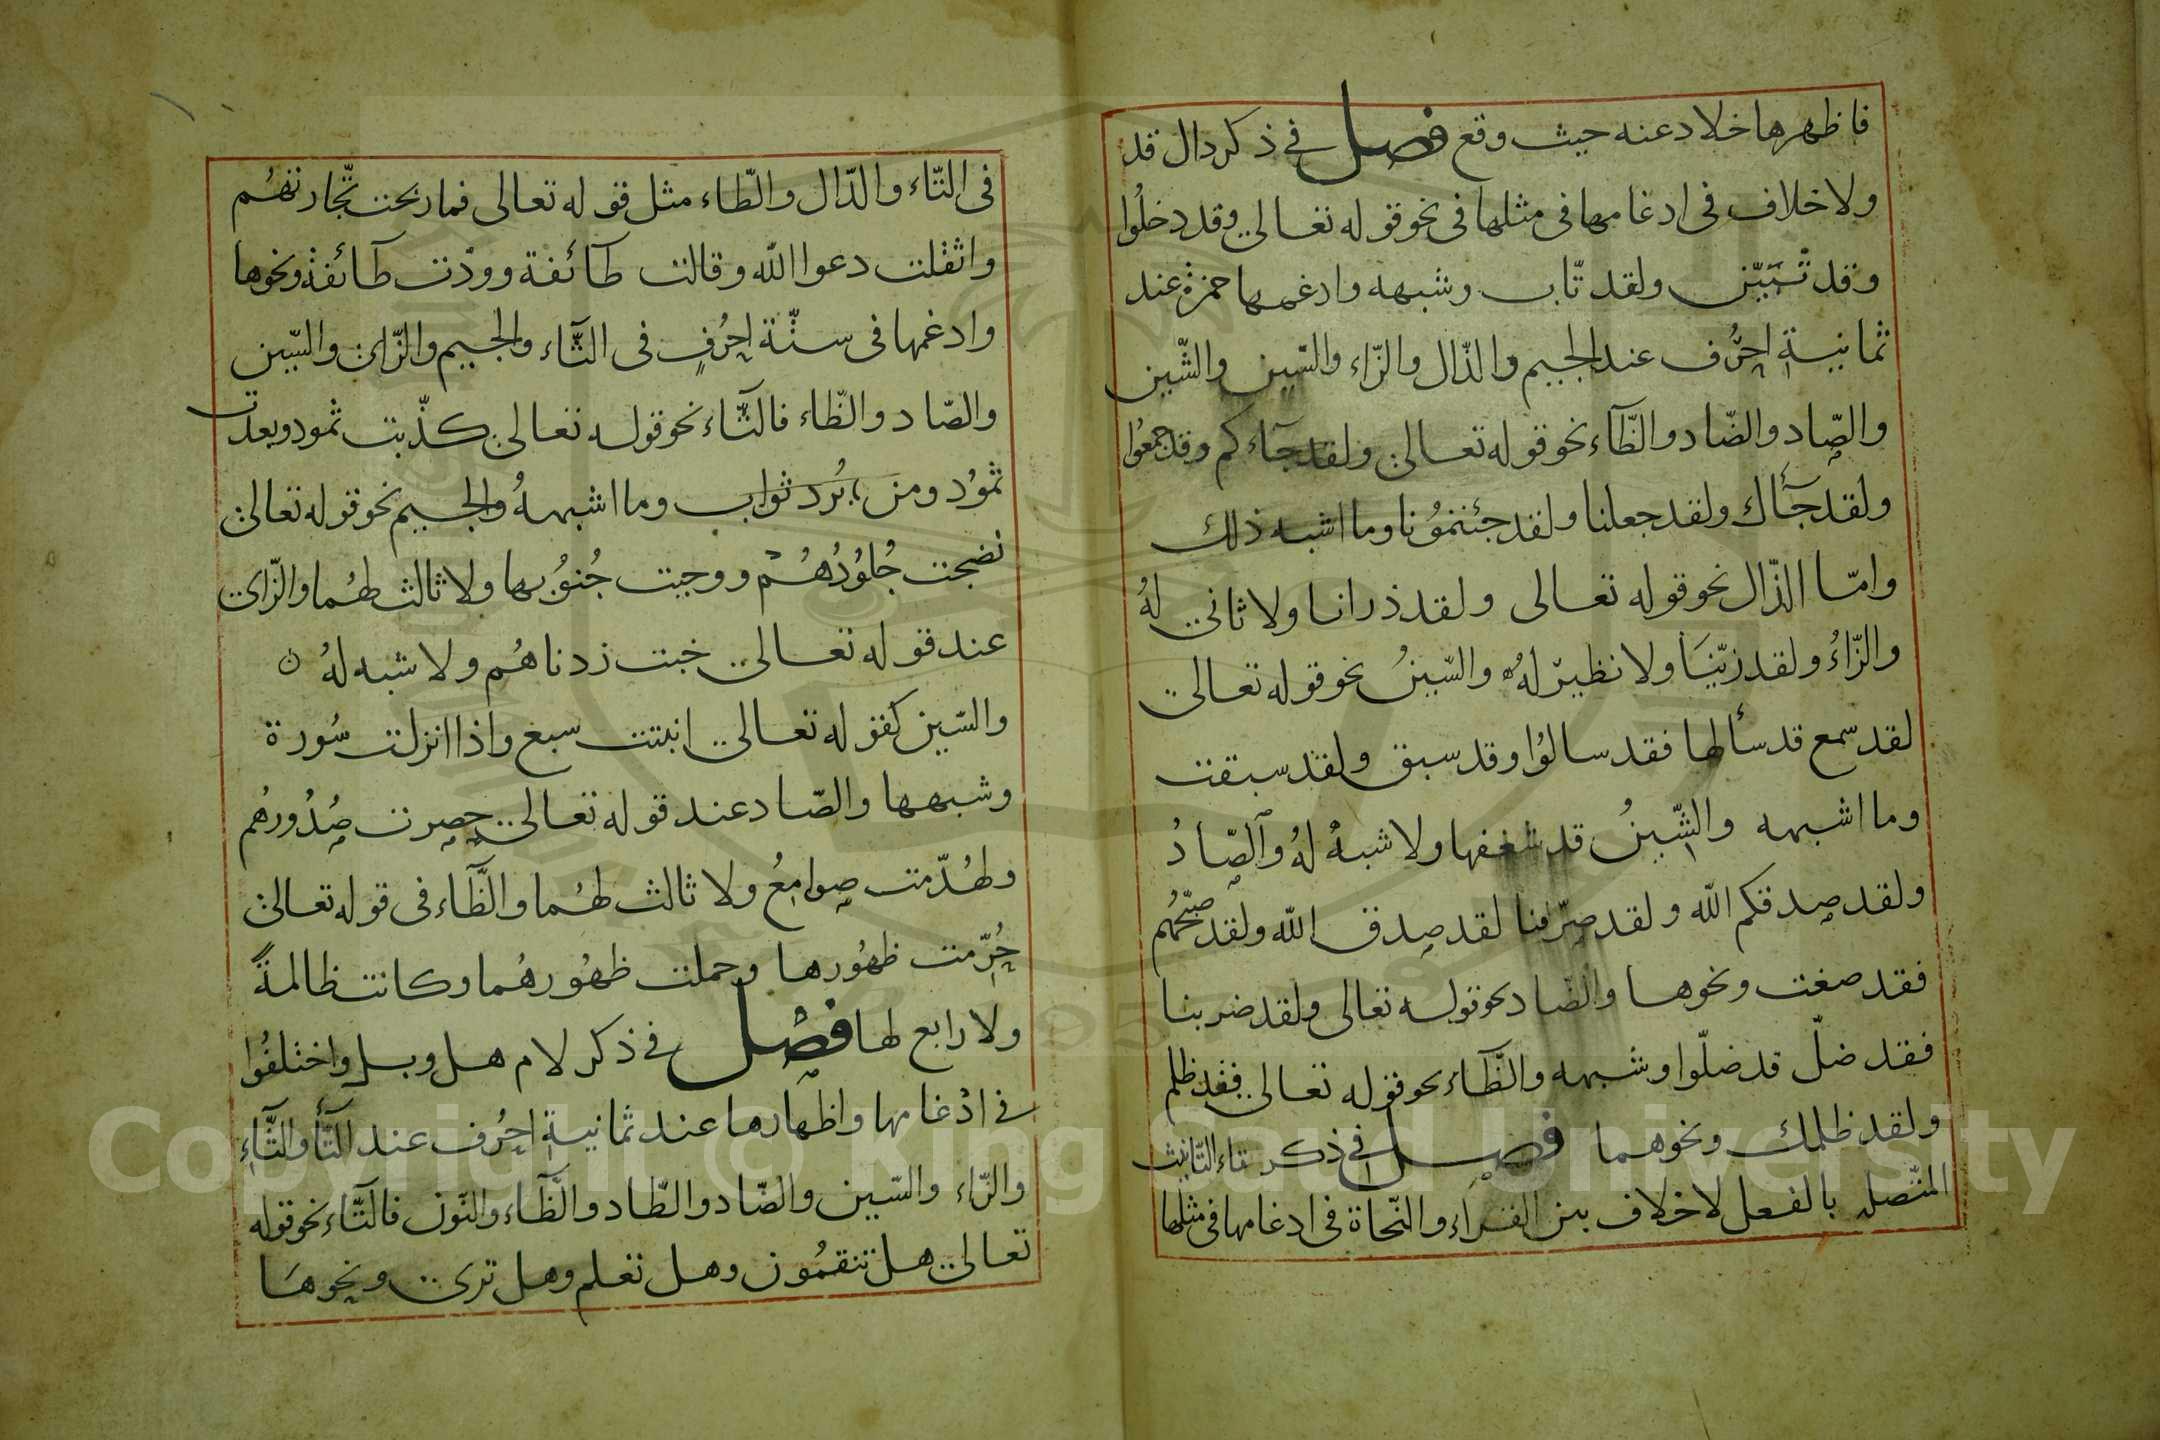 فاظهرها خلاد عنه حيث وقع فصل في ذكر دال قد
ولا خلاف في ادغامها في مثلها في نحو قوله تعالى وقد دخلوا
وقد تبيّن ولقد تّاب وشبهه وادغمها حمزة عند
ثمانية احرُف عند الجيم والذّال والزّاء والسّين والشّين
والصّاد والضّاد والظّآء نحو قوله تعالى ولقد جآءكم وقد جمعُوا
ولقد جآأك ولقد جعلنا ولقد جئنتمُونا وما اشبه ذلك
وامّا الذّال نحو قوله تعالى ولقد ذرانا ولا ثاني لهُ
والزّاءُ ولقد زيّنَا ولا نظيرَ لهُ والسّينُ نحو قوله تعالى
لقد سمع قد سألها فقد سالوُا وقد سبق ولقد سبقت
وما اشبهه والشّينُ قد شغفها ولا شبهُ لهُ والصّادُ
ولقد صدقكم الله ولقد صرّفنا لقد صدق الله ولقد صبّحهُم
فقد صغت ونحوها والضّاد نحو قوله تعالى ولقد ضربنا
فقد ضلّ قد ضلّوا وشبهه والظّآء نحو قوله تعالى فقد ظلم
ولقد ظلمك ونحوهما فصل في ذكر تاء التانيث
المتّصل بالفعل لا خلاف بين القرآء والنّحاة في ادغامها في مثلها
في التّاء والدّال والطّاء مثل قوله تعالى فما ربحت تّجارتهُم
واثقلت دعوا الله وقالت طآئفة وودّت طآئفة ونحوها
وادغمها في ستّة احرُفٍ في الثّآء والجيم والزّاى والسّين
والصّاد والظّاء فالثّآء نحو قوله تعالى كذّبت ثمود وبعدت
ثموُد ومن يُرد ثواب وما اشبههُ والجيم نحو قوله تعالى
نضجت جُلوُدُهُمْ ووجبت جُنوُبها ولا ثالث لهُما والزّاى
عند قوله تعالى خبت زدناهُم ولا شبه لهُ ن
والسّين كقوله تعالى انبتت سبع واذا انزلت سُورة
وشبهها والصّاد عند قوله تعالى حصرت صُدُورهُم
ولهُدّمت صوامعُ ولا ثالث لهُما والظّآء في قوله تعالى
حُرّمت ظهُورها وحملت ظهُورهُما وكانت ظالمةً
ولا رابع لها فصل في ذكر لام هل وبل واختلفُوا
في ادْغامها واظهارها عند ثمانية احرُف عند التّآ والثّآء
والزّاء والسّين والضّاد والطّاد والظّآء والنّون فالتّآء نحو قوله
تعالى هل تنقمُون وهل تعلم وهل ترى ونحوهَا
Copyright © King Saud University